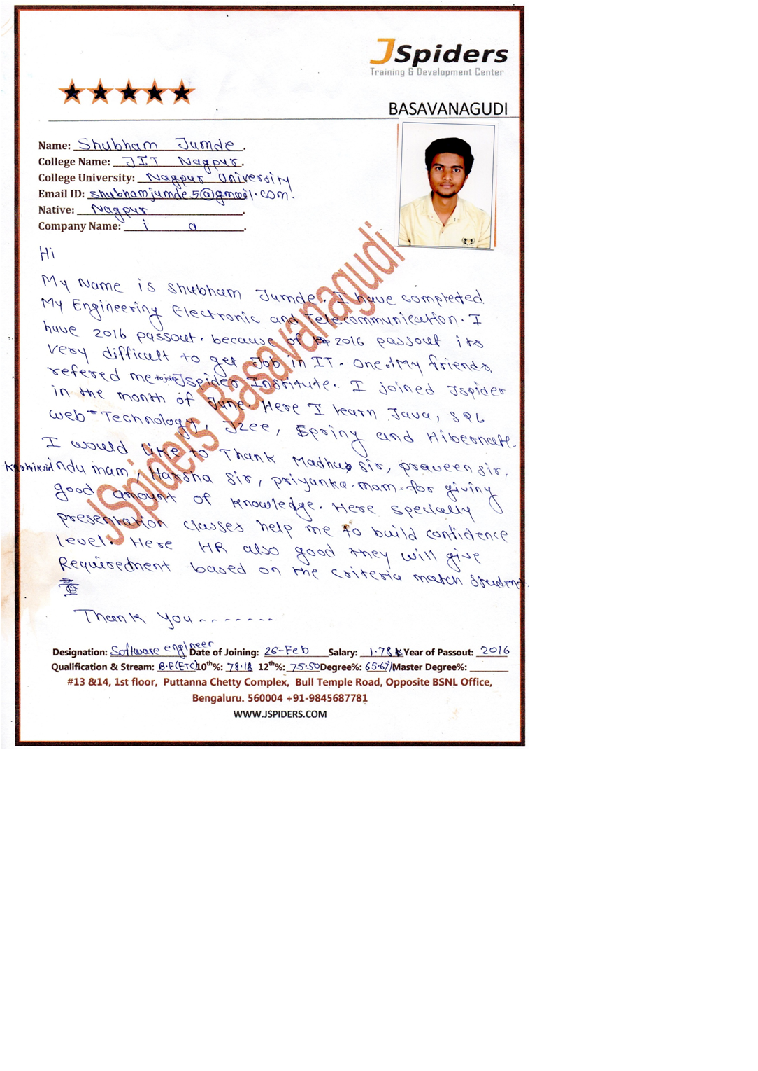 JSpiders
Training & Development Center
BASAVANAGUDI
Name: Shubham Jumde.
College Name: JIT Nagpur.
College University: Nagpur University
Email ID: shubhamjumde5@gmail.com.
Native: Nagpur
Company Name: i a
Hi
My Name is Shubham Jumde. I have completed
My Engineering Electronic and Telecommunication. I
have 2016 passout. because of 2016 passout its
very difficult to get Job in IT. one of My friends
refered me Jspider Institute. I joined Jspider
in the month of June. Here I learn Java, SQL
web Technology, J2ee, Spring and Hibernate.
I would like to Thank Madhup sir, praveen sir,
Indu mam, Harsha sir, priyanka mam for giving
good amount of knowledge. Here specially
presentation classes help me to build confidence
level. Here HR also good they will give
Requiredment based on the criteria match student
Thank you........
JSpiders Basavanagudi
Designation: Software engineer Date of Joining: 26-Feb Salary: 1.78 Year of Passout: 2016
Qualification & Stream: B.E(ETC) 10th%: 78.18 12th%: 75.50 Degree%: 65.67 /Master Degree%:
#13 &14, 1st floor, Puttanna Chetty Complex, Bull Temple Road, Opposite BSNL Office,
Bengaluru. 560004 +91-9845687781
WWW.JSPIDERS.COM